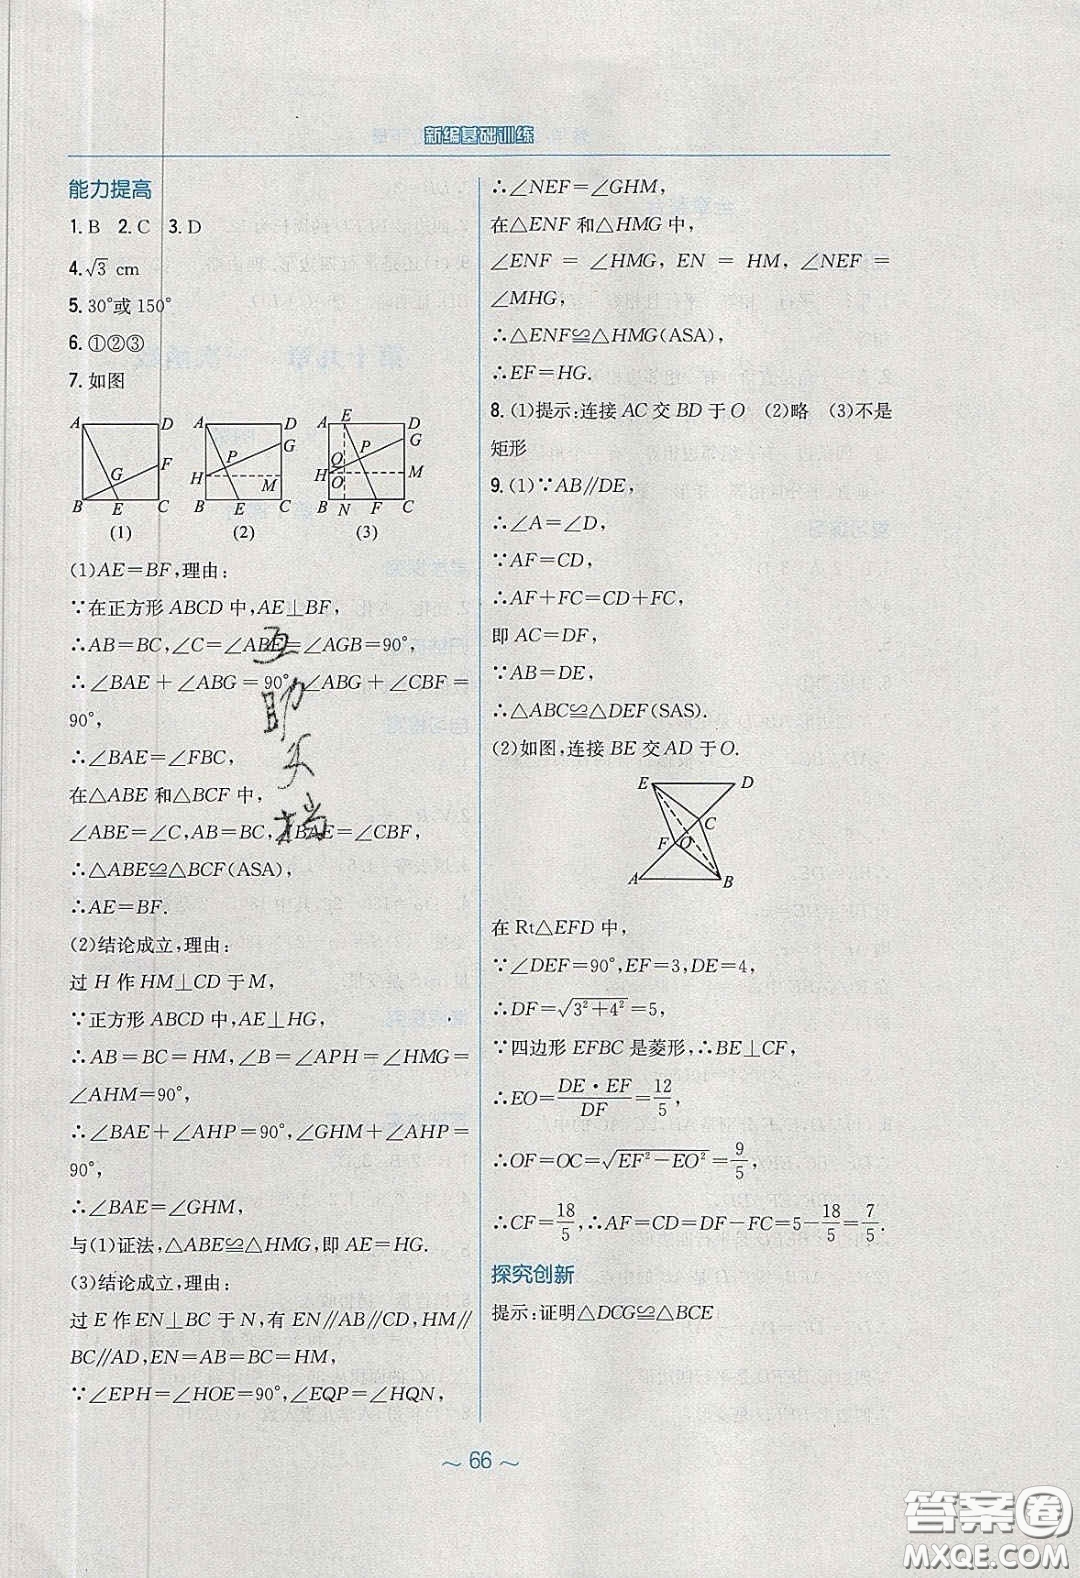 新编基础训练
能力提高
1. B 2. C 3. D
4. √3 cm
5. 30°或 150°
6. ①②③
7. 如图
A D F G B E C
(1)
A D G P H M B E C
(2)
A E D G P Q H O M B N F C
(3)
(1)AE=BF,理由:
∵在正方形 ABCD 中,AE⊥BF,
∴AB=BC,∠C=∠ABE=∠AGB=90°,
∴∠BAE+∠ABG=90°,∠ABG+∠CBF=
90°,
∴∠BAE=∠FBC,
在△ABE 和△BCF 中,
∠ABE=∠C,AB=BC,∠BAE=∠CBF,
∴△ABE≌△BCF(ASA),
∴AE=BF.
(2)结论成立,理由:
过 H 作 HM⊥CD 于 M,
∵正方形 ABCD 中,AE⊥HG,
∴AB=BC=HM,∠B=∠APH=∠HMG=
∠AHM=90°,
∴∠BAE+∠AHP=90°,∠GHM+∠AHP=
90°,
∴∠BAE=∠GHM,
与(1)证法,△ABE≌△HMG,即 AE=HG.
(3)结论成立,理由:
过 E 作 EN⊥BC 于 N,有 EN∥AB∥CD,HM∥
BC∥AD,EN=AB=BC=HM,
∵∠EPH=∠HOE=90°,∠EQP=∠HQN,
互助文档
∴∠NEF=∠GHM,
在△ENF 和△HMG 中,
∠ENF = ∠HMG, EN = HM, ∠NEF =
∠MHG,
∴△ENF≌△HMG(ASA),
∴EF=HG.
8. (1)提示:连接 AC 交 BD 于 O (2)略 (3)不是
矩形
9. (1)∵AB∥DE,
∴∠A=∠D,
∵AF=CD,
∴AF+FC=CD+FC,
即 AC=DF,
∵AB=DE,
∴△ABC≌△DEF(SAS).
(2)如图,连接 BE 交 AD 于 O.
E D C F O A B
在 Rt△EFD 中,
∵∠DEF=90°,EF=3,DE=4,
∴DF=√(3²+4²)=5,
∵四边形 EFBC 是菱形,∴BE⊥CF,
∴EO=DE·EF/DF=12/5,
∴OF=OC=√(EF²-EO²)=9/5,
∴CF=18/5,∴AF=CD=DF-FC=5-18/5=7/5.
探究创新
提示:证明△DCG≌△BCE
~ 66 ~
答案圈
MXQE.COM